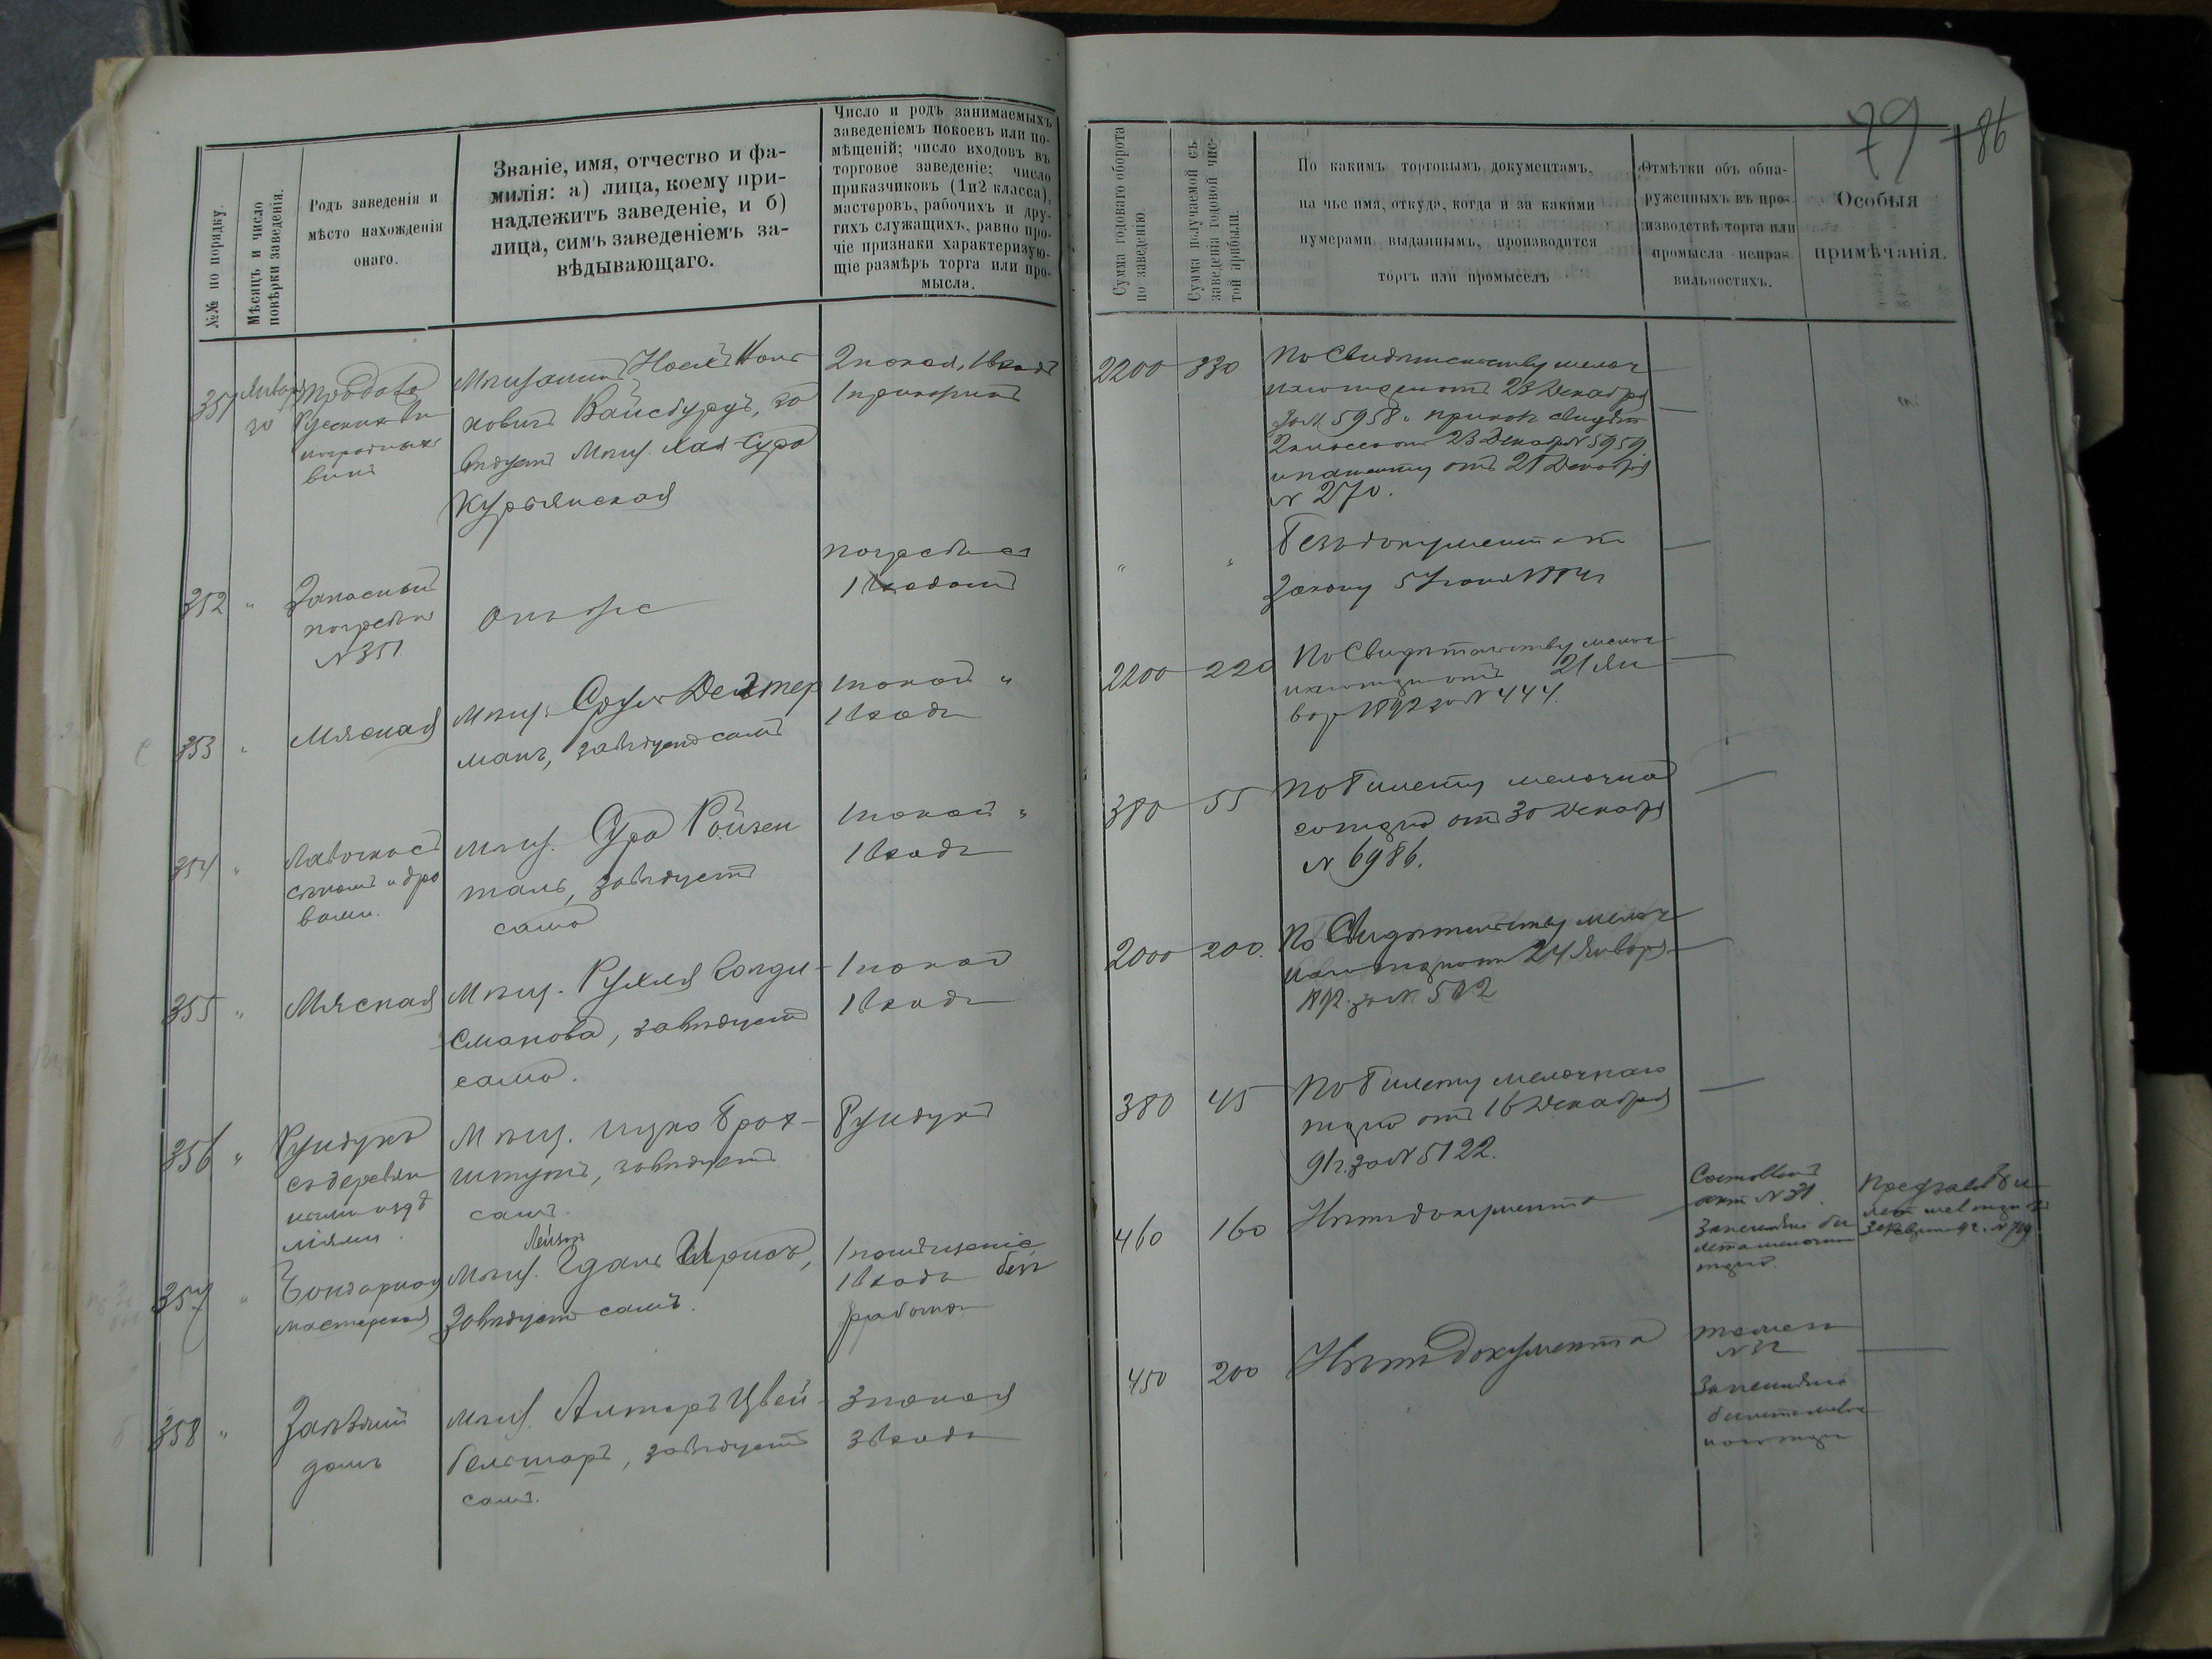 79
86
№№ по порядку.
Мѣсяцъ и число
повѣрки заведенія.
Родъ заведенія и
мѣсто нахожденія
онаго.
Званіе, имя, отчество и фа-
милія: а) лица, коему при-
надлежитъ заведеніе, и б)
лица, симъ заведеніемъ за-
вѣдывающаго.
Число и родъ занимаемыхъ
заведеніемъ покоевъ или по-
мѣщеній; число входовъ въ
торговое заведеніе; число
приказчиковъ (1и2 класса),
мастеровъ, рабочихъ и дру-
гихъ служащихъ, равно про-
чіе признаки характеризую-
щіе размѣръ торга или про-
мысла.
Сумма годоваго оборота
по заведенію.
Сумма получаемой съ
заведенія годовой чис-
той прибыли.
По какимъ торговымъ документамъ,
на чье имя, откуда, когда и за какими
нумерами выданнымъ, производится
торгъ или промыселъ
Отмѣтки объ обна-
руженныхъ въ про-
изводствѣ торга или
промысла неправ-
вильностяхъ.
Особыя
примѣчанія.
351
Января
30
Продажа
Русскихъ Ви
ноградныхъ
винъ
Мѣщанинъ
ховичъ Вайсбурдъ, за
вѣдуетъ Мѣщ. Хая-Сура
Курьянская
2 покоя, 1 входъ
1 прикащикъ
2200
330
По Свидѣтельству мелоч
наго торга отъ 23 Декабря
за № 5958 и приказ свидѣт
2 класса отъ 23 Декабр № 5959
и патенту отъ 21 Декабря
№ 270.
352 "
Запасный
погребъ
№ 351
Онъ же
погребъ съ
1 входомъ
" "
Безъ документа по
Закону 5 Іюня 1884 г
353 "
Мясная
Мѣщ. Сруль Дехтер
манъ, завѣдуетъ самъ
1 покой "
1 входъ
2200
220
По Свидѣтельству мелоч
наго торга отъ 21 Ян
вар 1892 за № 444.
354 "
Лавочка съ
сѣномъ и дро
вами.
Мѣщ. Сура Ройзен
таль, завѣдуетъ
сама
1 покой "
1 входъ
380
55
По Билету мелочна
го торга отъ 30 Декабря
№ 6986.
355 "
Мясная
Мѣщ. Рухля
сманова, завѣдуетъ
сама.
1 покой
1 входъ
2000
200.
По Свидѣтельству мелоч
наго торга отъ 24 Января
1892. за № 502
356 "
Рундукъ
съ деревян
ными издѣ
ліями.
Мѣщ. Ицко Брох-
штутъ, завѣдуетъ
самъ.
Рундукъ
380
45
По Билету мелочнаго
торга отъ 16 Декабря
91 г. за № 5122.
357 "
Бондарная
мастерская
Лейзоръ
Мѣщ. Гдаль
Завѣдуетъ самъ.
1 помѣщеніе
1 входъ безъ
работн
460
160
Нѣтъ документа
Составленъ
актъ № 31.
За неимѣніе би
лета мелочнаго
торга.
358 "
Заѣзжій
домъ
Мѣщ. Алтеръ Цвей-
бельтаръ, завѣдуетъ
самъ.
3 покоя
3 входа
450
200
Нѣтъ Документа
тоже
№ 32
За неимѣніе
билета мелоч
наго торга